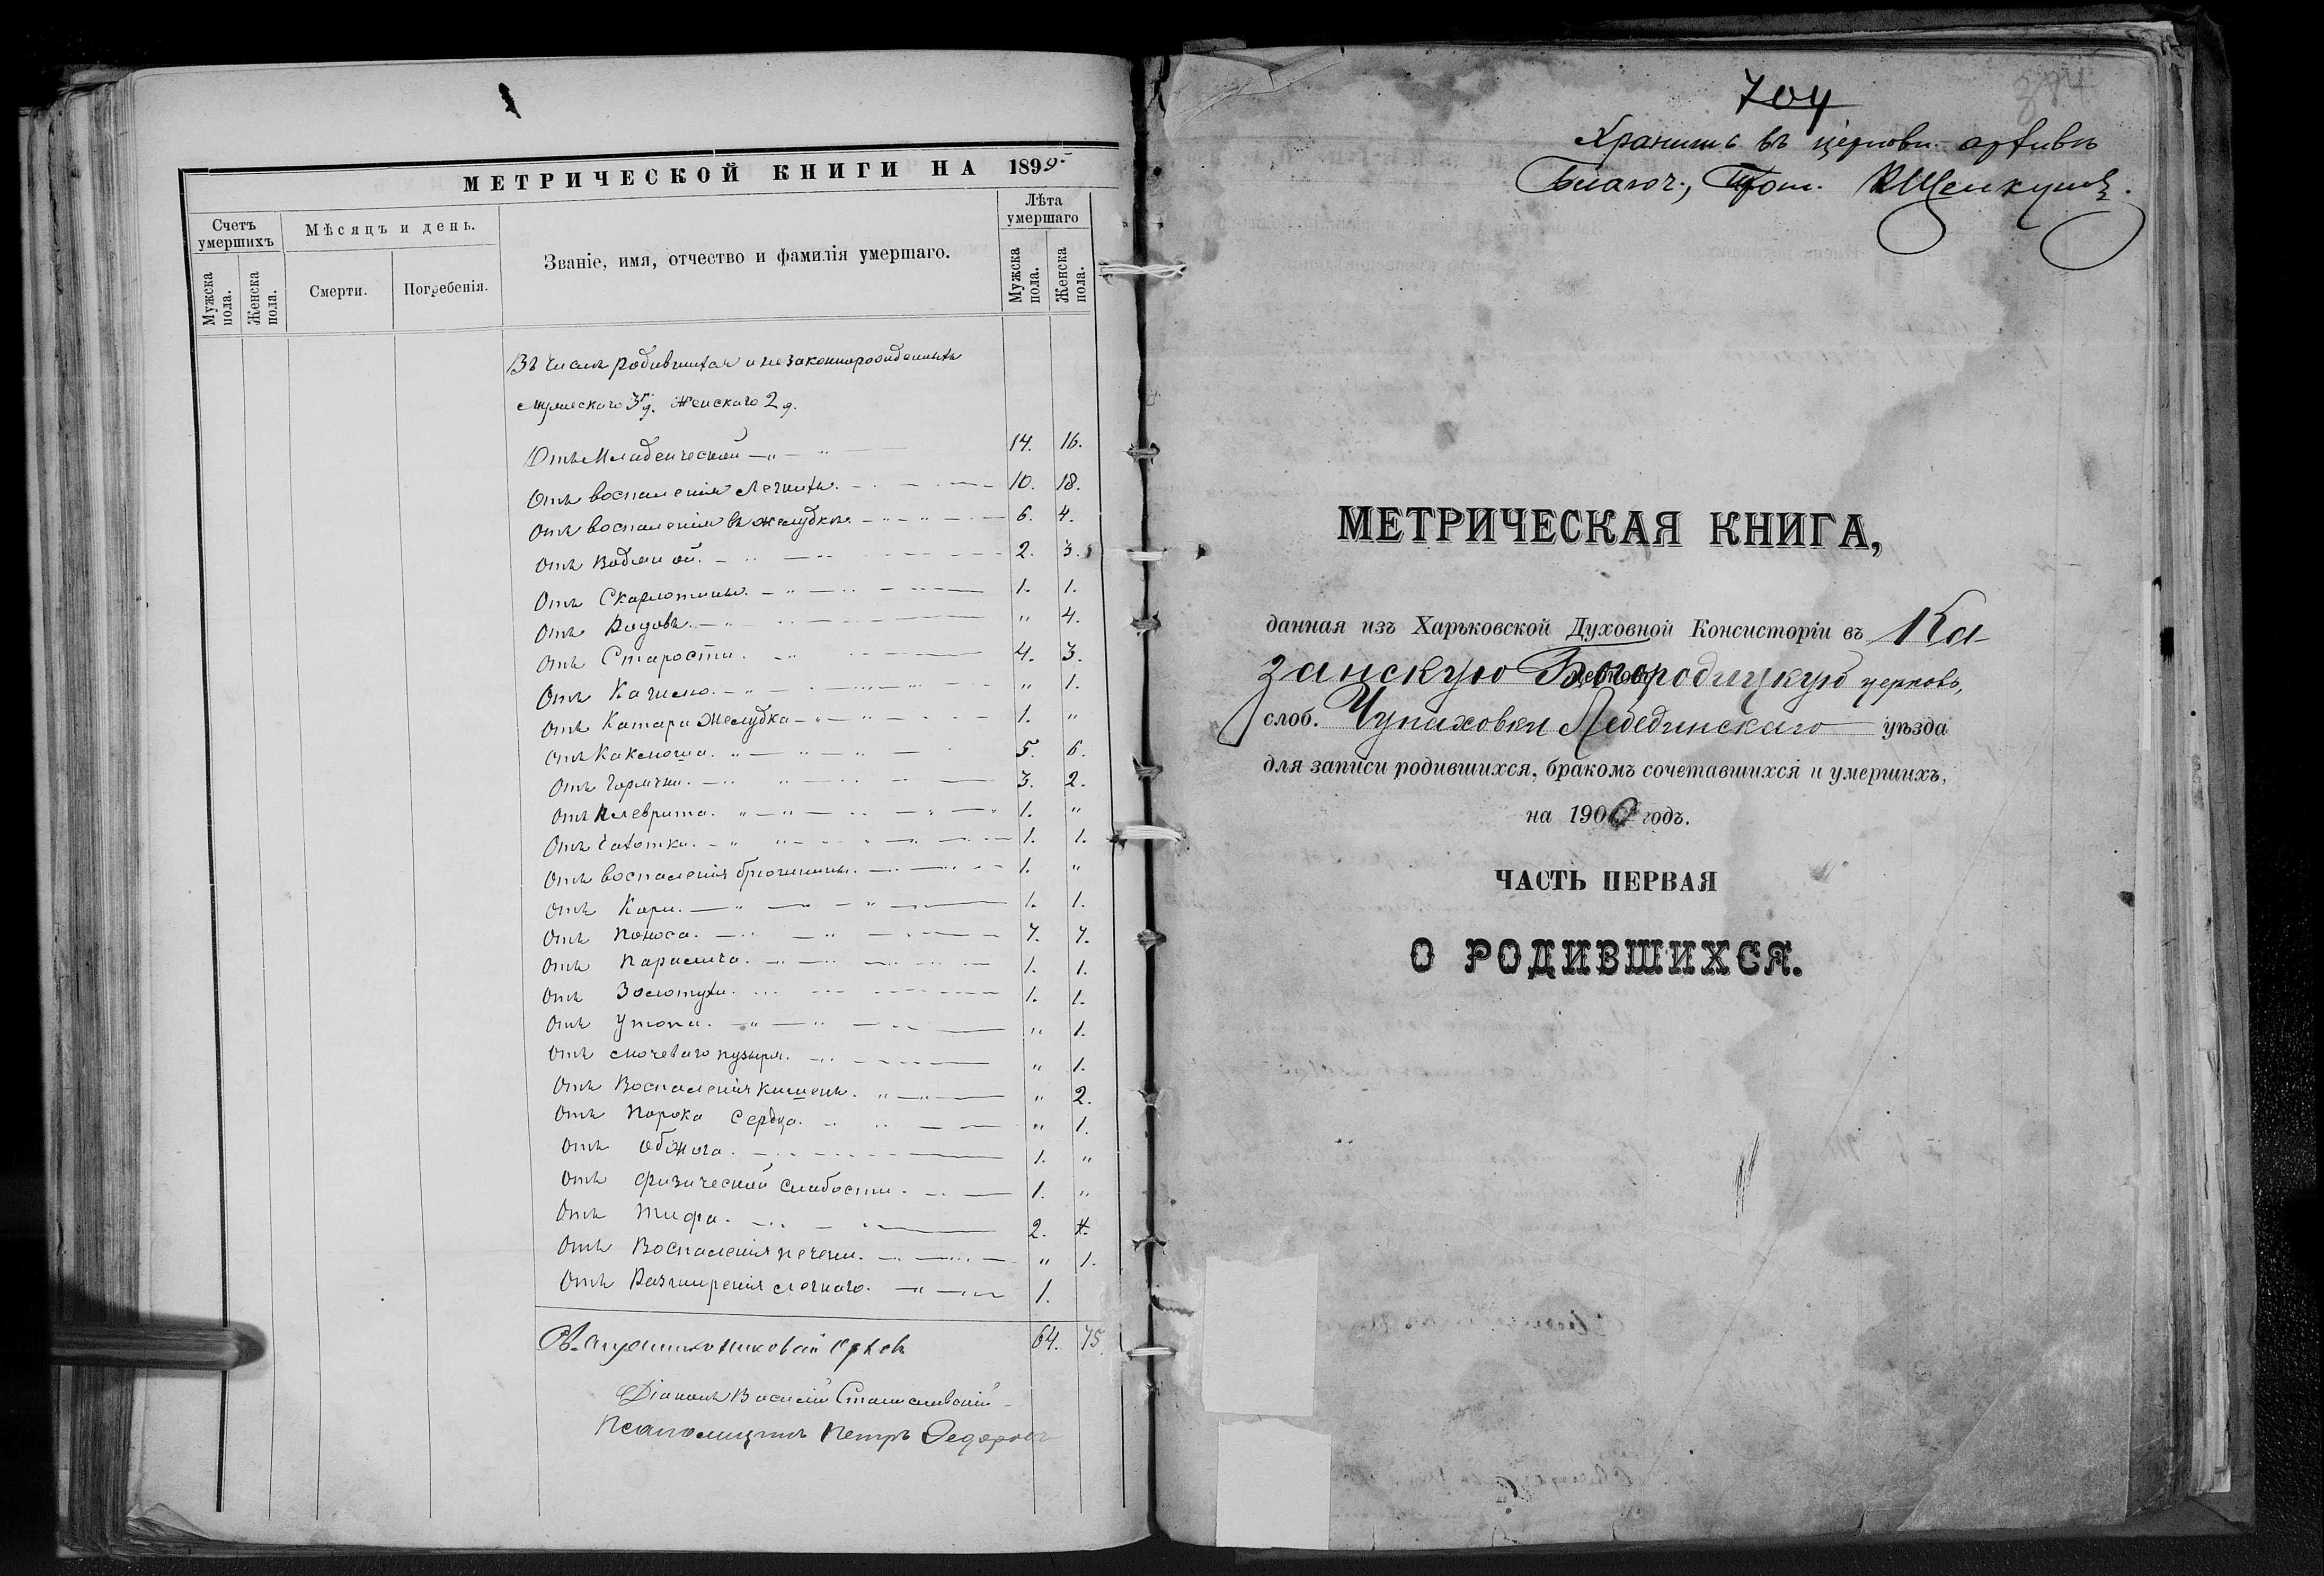 МЕТРИЧЕСКОЙ КНИГИ НА 1899
Счетъ умершихъ
Мѣсяцъ и день.
Званіе, имя, отчество и фамилія умершаго.
Лѣта умершаго
Мужска пола.
Женска пола.
Смерти.
Погребенія.
Мужска пола.
Женска пола.
Въ числѣ родившихся и незаконнорожденныхъ
мужескаго 3 д. женскаго 2 д.
Отъ Младенческой 14. 16.
Отъ воспаленія легкихъ. 10. 18.
Отъ воспаленія въ желудкѣ. 6. 4.
Отъ Водяной. 2. 3.
Отъ Скарлотины. 1. 1.
Отъ Родовъ. " 4.
Отъ Старости. 4. 3.
Отъ " 1.
Отъ Катара Желудка 1. "
Отъ Коклюша. 5. 6.
Отъ Горячки. 3. 2.
Отъ Плеврита. 1. "
Отъ Чахотки. 1. 1.
Отъ воспаленія брюшины. 1. "
Отъ Кори. 1. 1.
Отъ Поноса. 7. 7.
Отъ Паралича. 1. 1.
Отъ Золотухи. 1. 1.
Отъ " 1.
Отъ мочеваго пузыря. " 1.
Отъ Воспаленія кишекъ. " 2.
Отъ Порока Сердца. " 1.
Отъ Обжога. 1. "
Отъ физической слабости. 1. "
Отъ Тифа. 2.
Отъ Воспаленія печени. " 1.
Отъ Расширенія легкаго. 1.
64. 75.
Діаконъ Василій Станиславскій
Псаломщикъ Петръ Федоровъ
704
Хранить въ церковн. архивѣ
Благоч., Прот.
МЕТРИЧЕСКАЯ КНИГА,
данная изъ Харьковской Духовной Консисторіи въ Ка-
занскую Богородицкую церковь,
слоб. Чупаховки Лебединскаго уѣзда
для записи родившихся, бракомъ сочетавшихся и умершихъ,
на 1900 годъ.
ЧАСТЬ ПЕРВАЯ
О РОДИВШИХСЯ.